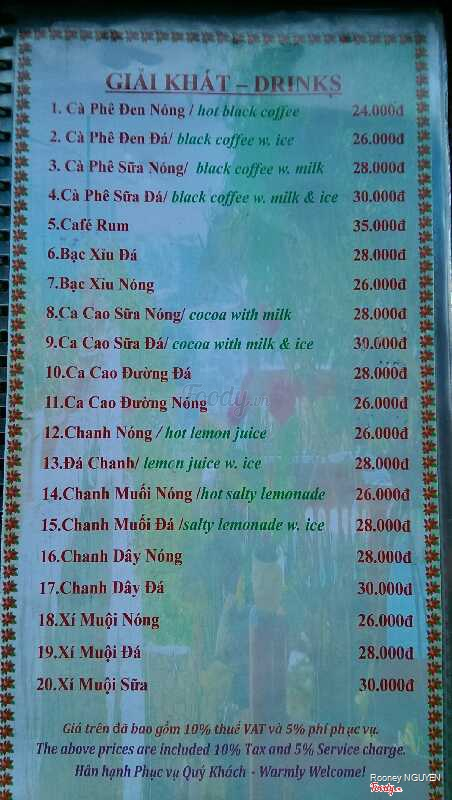 GIẢI KHÁT – DRINKS
1. Cà Phê Đen Nóng / hot black coffee 24.000đ
2. Cà Phê Đen Đá/ black coffee w. ice 26.000đ
3. Cà Phê Sữa Nóng/ black coffee w. milk 28.000đ
4.Cà Phê Sữa Đá/ black coffee w. milk & ice 30.000đ
5.Café Rum 35.000đ
6.Bạc Xỉu Đá 28.000đ
7.Bạc Xỉu Nóng 26.000đ
8.Ca Cao Sữa Nóng/ cocoa with milk 28.000đ
9.Ca Cao Sữa Đá/ cocoa with milk & ice 30.000đ
10.Ca Cao Đường Đá 28.000đ
Foody.vn
11.Ca Cao Đường Nóng 26.000đ
12.Chanh Nóng / hot lemon juice 26.000đ
13.Đá Chanh/ lemon juice w. ice 28.000đ
14.Chanh Muối Nóng /hot salty lemonade 26.000đ
15.Chanh Muối Đá /salty lemonade w. ice 28.000đ
16.Chanh Dây Nóng 28.000đ
17.Chanh Dây Đá 30.000đ
18.Xí Muội Nóng 26.000đ
19.Xí Muội Đá 28.000đ
20.Xí Muội Sữa 30.000đ
Giá trên đã bao gồm 10% thuế VAT và 5% phí phục vụ.
The above prices are included 10% Tax and 5% Service charge.
Hân hạnh Phục vụ Quý Khách - Warmly Welcome!
Rooney NGUYEN
Foody.vn